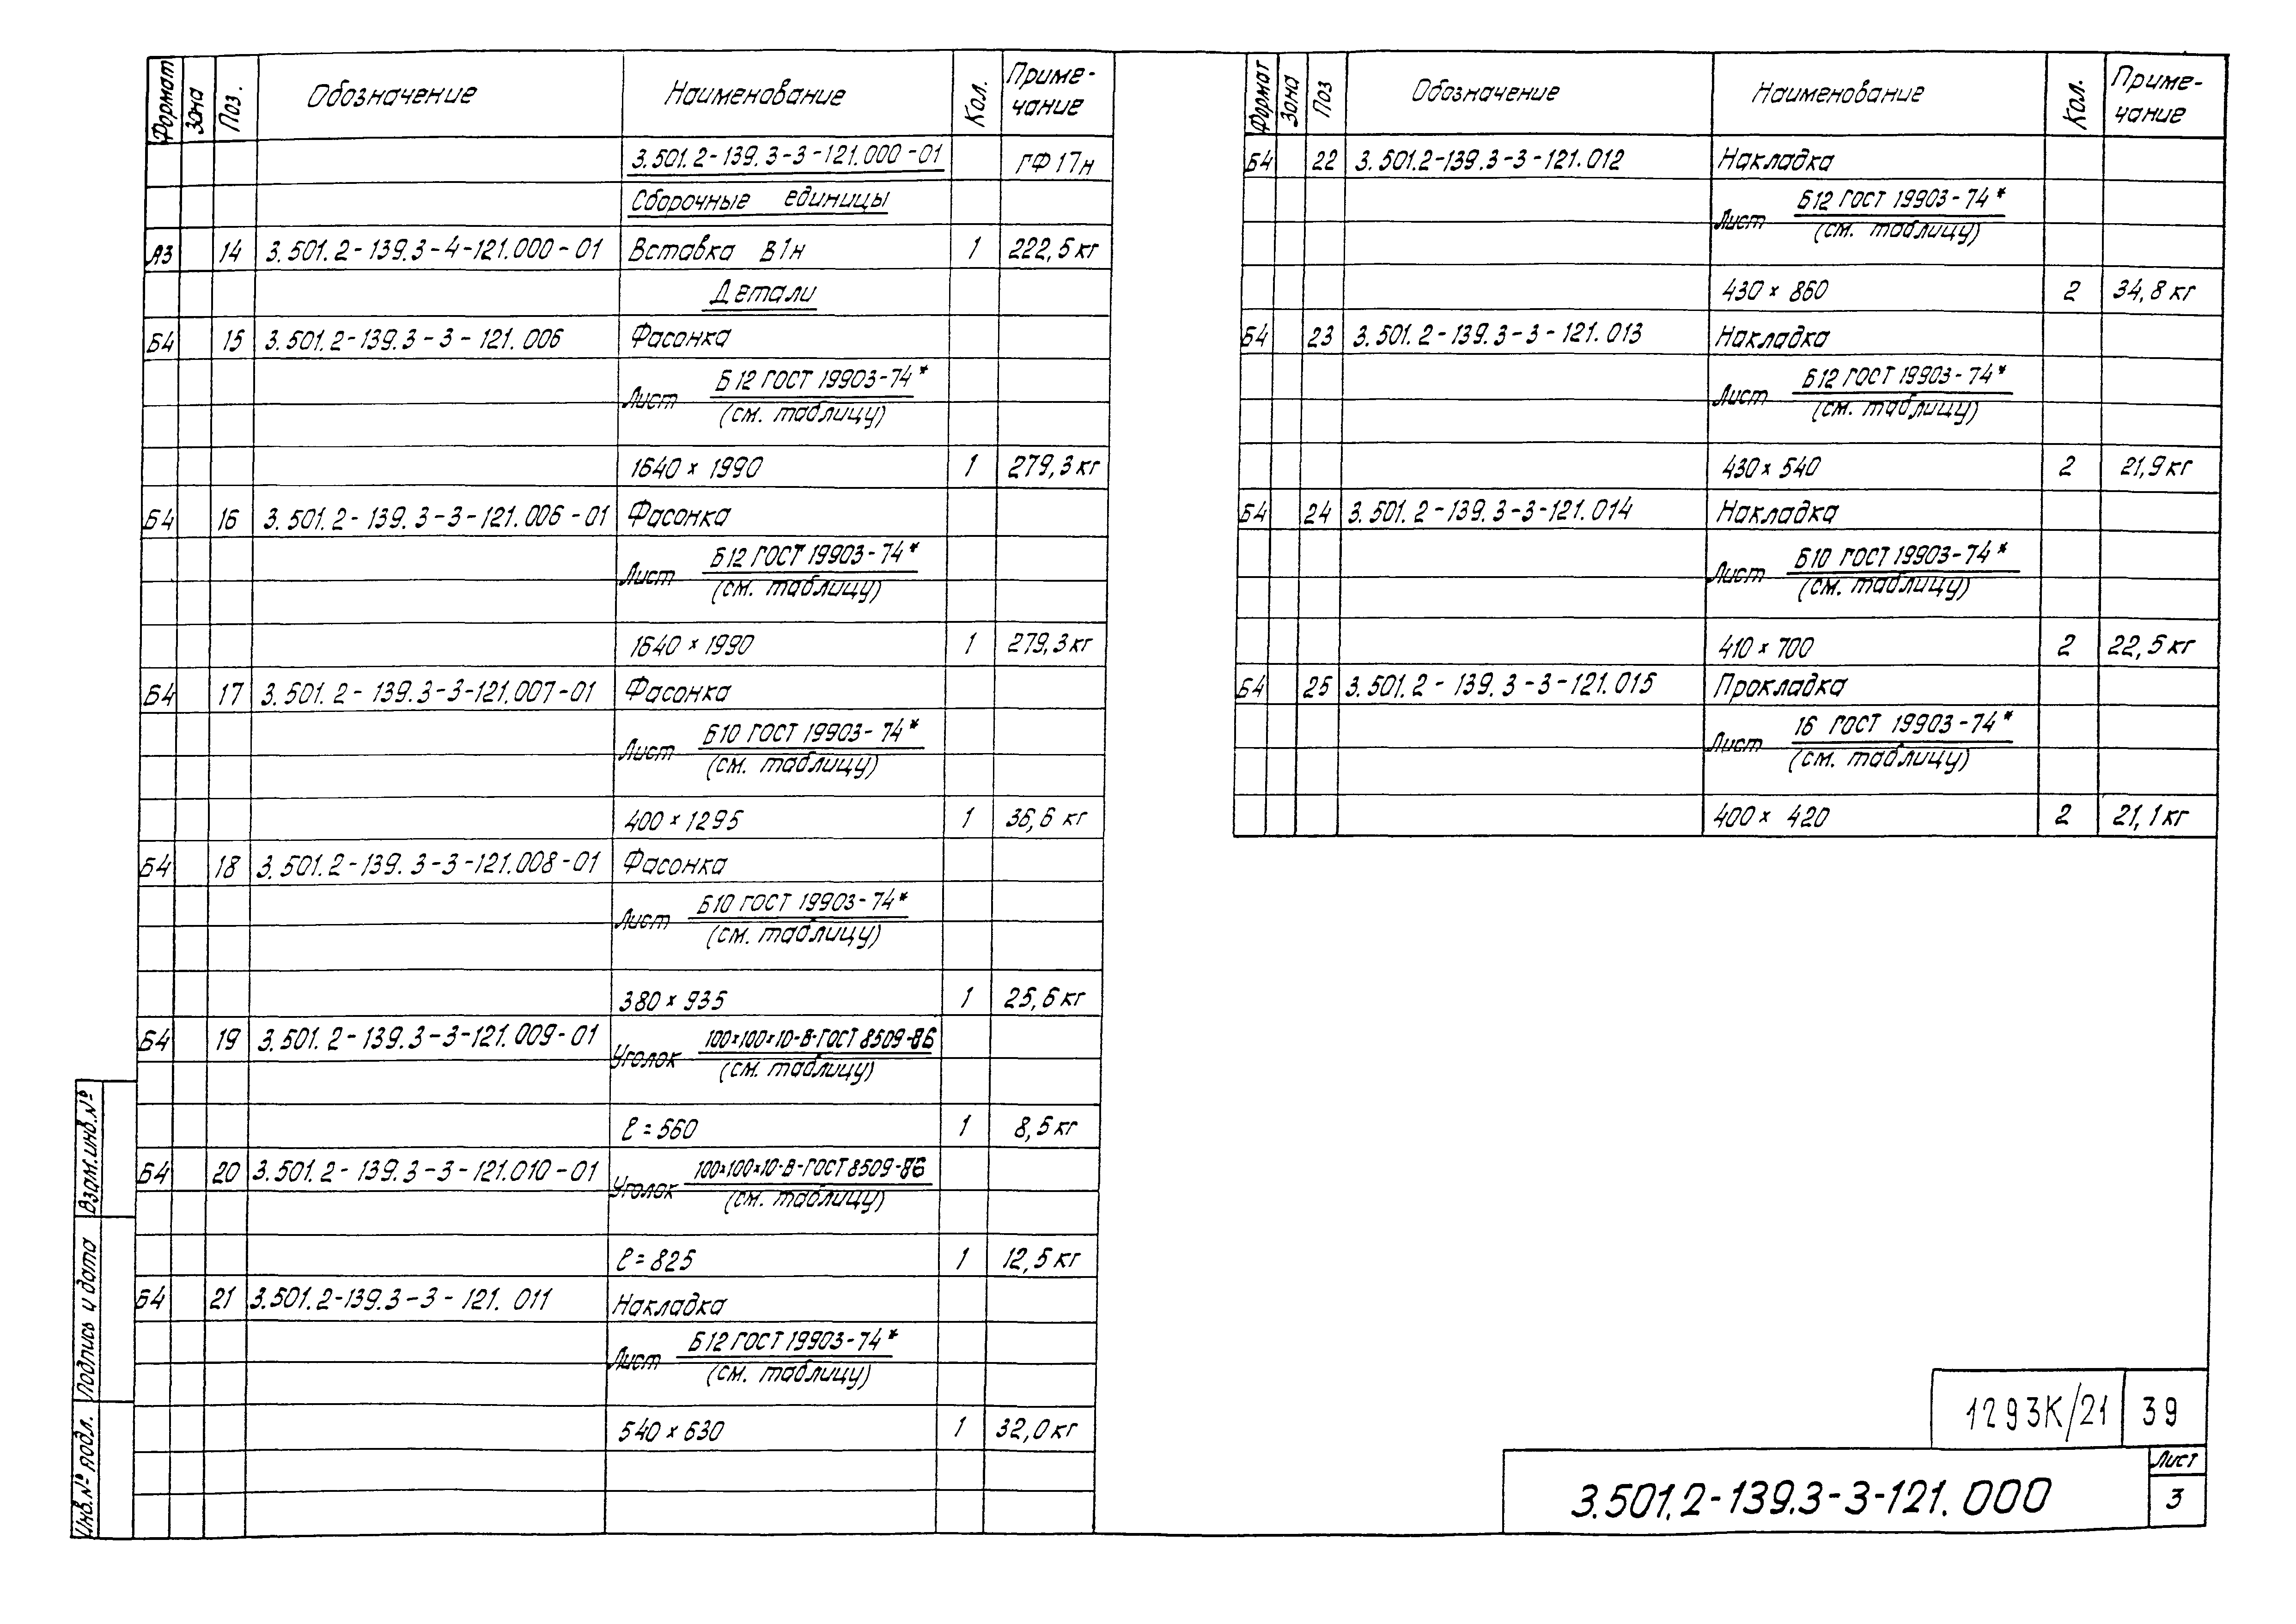 Формат Зона Поз. Обозначение Наименование Кол. Приме-
чание
3.501.2-139.3-3-121.000-01 ГФ17н
Сборочные единицы
А3 14 3.501.2-139.3-4-121.000-01 Вставка В1н 1 222,5кг
Детали
Б4 15 3.501.2-139.3-3-121.006 Фасонка
Лист Б12 ГОСТ 19903-74*
(см. таблицу)
1640 × 1990 1 279,3кг
Б4 16 3.501.2-139.3-3-121.006-01 Фасонка
Лист Б12 ГОСТ 19903-74*
(см. таблицу)
1640 × 1990 1 279,3кг
Б4 17 3.501.2-139.3-3-121.007-01 Фасонка
Лист Б10 ГОСТ 19903-74*
(см. таблицу)
400 × 1295 1 36,6 кг
Б4 18 3.501.2-139.3-3-121.008-01 Фасонка
Лист Б10 ГОСТ 19903-74*
(см. таблицу)
380 × 935 1 25,6 кг
Б4 19 3.501.2-139.3-3-121.009-01 Уголок 100×100×10-В-ГОСТ 8509-86
(см. таблицу)
ℓ = 560 1 8,5 кг
Б4 20 3.501.2-139.3-3-121.010-01 Уголок 100×100×10-В-ГОСТ 8509-86
(см. таблицу)
ℓ = 825 1 12,5 кг
Б4 21 3.501.2-139.3-3-121.011 Накладка
Лист Б12 ГОСТ 19903-74*
(см. таблицу)
540 × 630 1 32,0кг
Формат Зона Поз Обозначение Наименование Кол. Приме-
чание
Б4 22 3.501.2-139.3-3-121.012 Накладка
Лист Б12 ГОСТ 19903-74*
(см. таблицу)
430 × 860 2 34,8 кг
Б4 23 3.501.2-139.3-3-121.013 Накладка
Лист Б12 ГОСТ 19903-74*
(см. таблицу)
430 × 540 2 21,9кг
Б4 24 3.501.2-139.3-3-121.014 Накладка
Лист Б10 ГОСТ 19903-74*
(см. таблицу)
410 × 700 2 22,5 кг
Б4 25 3.501.2-139.3-3-121.015 Прокладка
Лист 16 ГОСТ 19903-74*
(см. таблицу)
400 × 420 2 21,1кг
Взам.инв.№
Подпись и дата
Инв.№ подл.
1293К/21 39
3.501.2-139.3-3-121.000 Лист
3